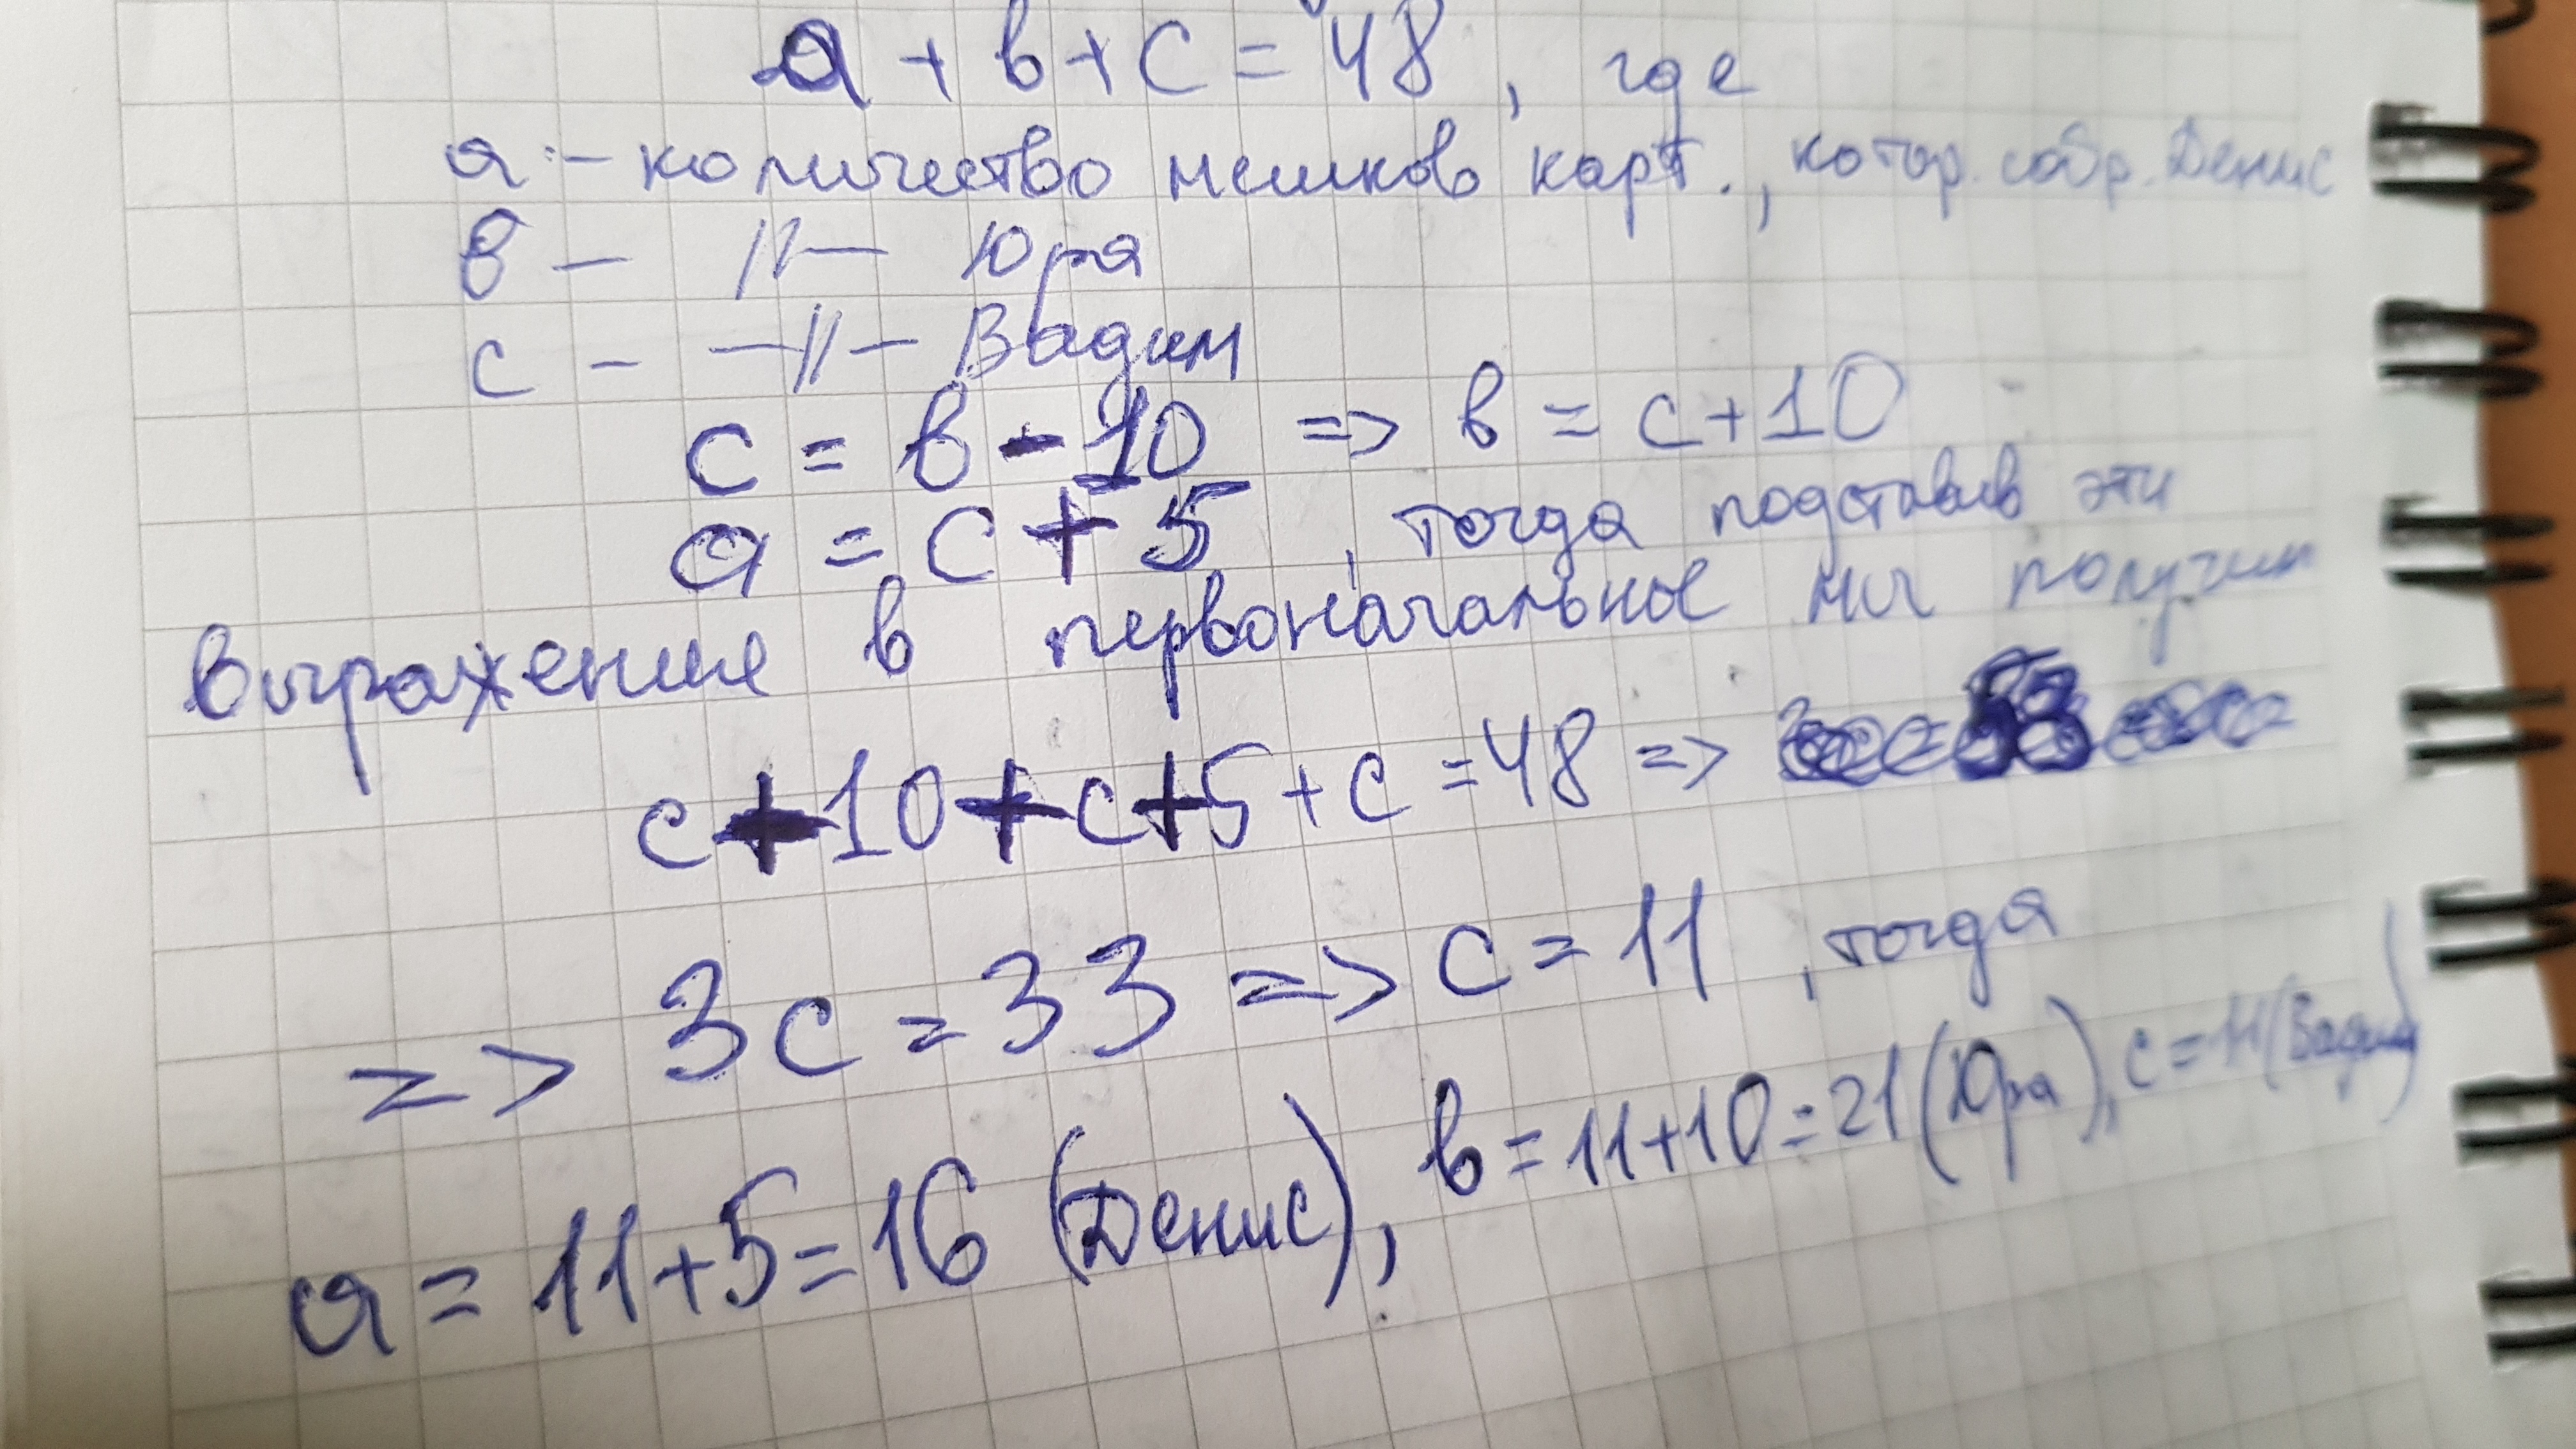 а + в + с = 48, где
а - количество мешков карт., котор. собр. Денис
в - -//- Юра
с - -//- Вадим
с = в - 10 => в = с + 10
а = с + 5, тогда подставив эти
выражение в первоначальное мы получим
с + 10 + с + 5 + с = 48 =>
=> 3с = 33 => с = 11, тогда
а = 11 + 5 = 16 (Денис), в = 11 + 10 = 21 (Юра), с = 11 (Вадим)